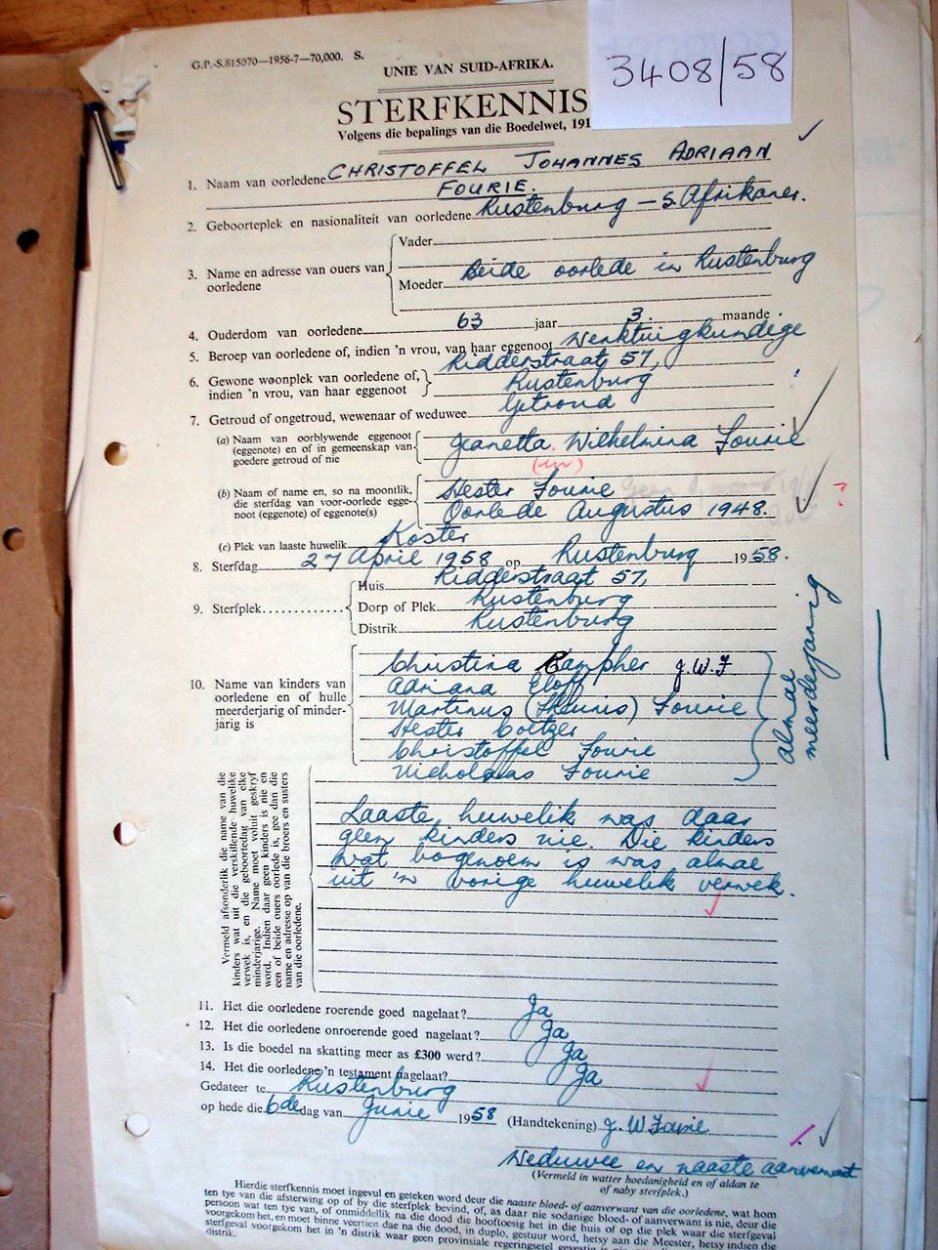 G.P.-S.815070—1956-7—70,000. S.
3408/58
UNIE VAN SUID-AFRIKA.
STERFKENNIS
Volgens die bepalings van die Boedelwet, 191
1. Naam van oorledene CHRISTOFFEL JOHANNES ADRIAAN
FOURIE.
2. Geboorteplek en nasionaliteit van oorledene Rustenburg — S. Afrikaner.
3. Name en adresse van ouers van oorledene
Vader
Beide oorlede in Rustenburg
Moeder
4. Ouderdom van oorledene 63 jaar 3. maande
5. Beroep van oorledene of, indien 'n vrou, van haar eggenoot Werktuigkundege
6. Gewone woonplek van oorledene of, indien 'n vrou, van haar eggenoot
Ridderstraat 57,
Rustenburg
7. Getroud of ongetroud, wewenaar of weduwee Getroud
(a) Naam van oorblywende eggenoot (eggenote) en of in gemeenskap van goedere getroud of nie
Jeanetta Wilhelmina Fourie
(b) Naam of name en, so na moontlik, die sterfdag van voor-oorlede eggenoot (eggenote) of eggenote(s)
Hester Fourie
Oorlede Augustus 1948.
(c) Plek van laaste huwelik Koster
8. Sterfdag 27 April 1958 op Rustenburg 1958.
9. Sterfplek
Huis Ridderstraat 57,
Dorp of Plek Rustenburg
Distrik Rustenburg
10. Name van kinders van oorledene en of hulle meerderjarig of minderjarig is
Christina Campher J.W.F
Adriana Eloff
Martinus (Theunis) Fourie
Hester Coetzer
Christoffel Fourie
Nicholaas Fourie
almae meerderjarig
Vermeld afsonderlik die name van die
kinders wat uit die verskillende huwelike
verwek is, en die geboortedag van elke
minderjarige. Name moet voluit geskryf
word. Indien daar geen kinders is nie en
een of beide ouers oorlede is, gee dan die
name en adresse op van die broers en susters
van die oorledene.
Laaste huwelik was daar
geen kinders nie. Die kinders
wat bogenoem is was almae
uit 'n vorige huwelik verwek.
11. Het die oorledene roerende goed nagelaat? Ja
12. Het die oorledene onroerende goed nagelaat? Ja
13. Is die boedel na skatting meer as £300 werd? Ja
14. Het die oorledene 'n testament nagelaat? Ja
Gedateer te Rustenburg
op hede die 6de dag van Junie 1958 (Handtekening) J. W Fourie
Weduwee en naaste aanverwant
(Vermeld in watter hoedanigheid en of aldan te
of naby sterfplek.)
Hierdie sterfkennis moet ingevul en geteken word deur die naaste bloed- of aanverwant van die oorledene, wat hom
ten tye van die afsterwing op of by die sterfplek bevind, of, as daar nie sodanige bloed- of aanverwant is nie, deur die
persoon wat ten tye van, of onmiddellik na die dood die hooftoesig het in die huis of op die plek waar die sterfgeval
voorgekom het, en moet binne veertien dae na die dood, in duplo, gestuur word, hetsy aan die Meester, hetsy indien die
sterfgeval voorgekom het in 'n distrik waar geen provinsiale regeringsetel gevestig is
distrik.